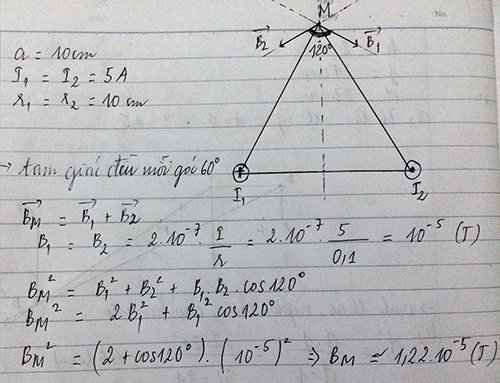 M
No.
B₂→ B₁→
120°
a = 10cm
I₁ = I₂ = 5A
r₁ = r₂ = 10 cm
→ tam giác đều mỗi góc 60°
I₁ I₂
B_M→ = B₁→ + B₂→
B₁ = B₂ = 2.10⁻⁷ . I/r = 2.10⁻⁷ . 5/0,1 = 10⁻⁵ (T)
B_M² = B₁² + B₂² + B₁B₂.cos120°
B_M² = 2B₁² + B₁² cos120°
B_M² = (2 + cos120°).(10⁻⁵)² ⇒ B_M ≈ 1,22.10⁻⁵ (T)